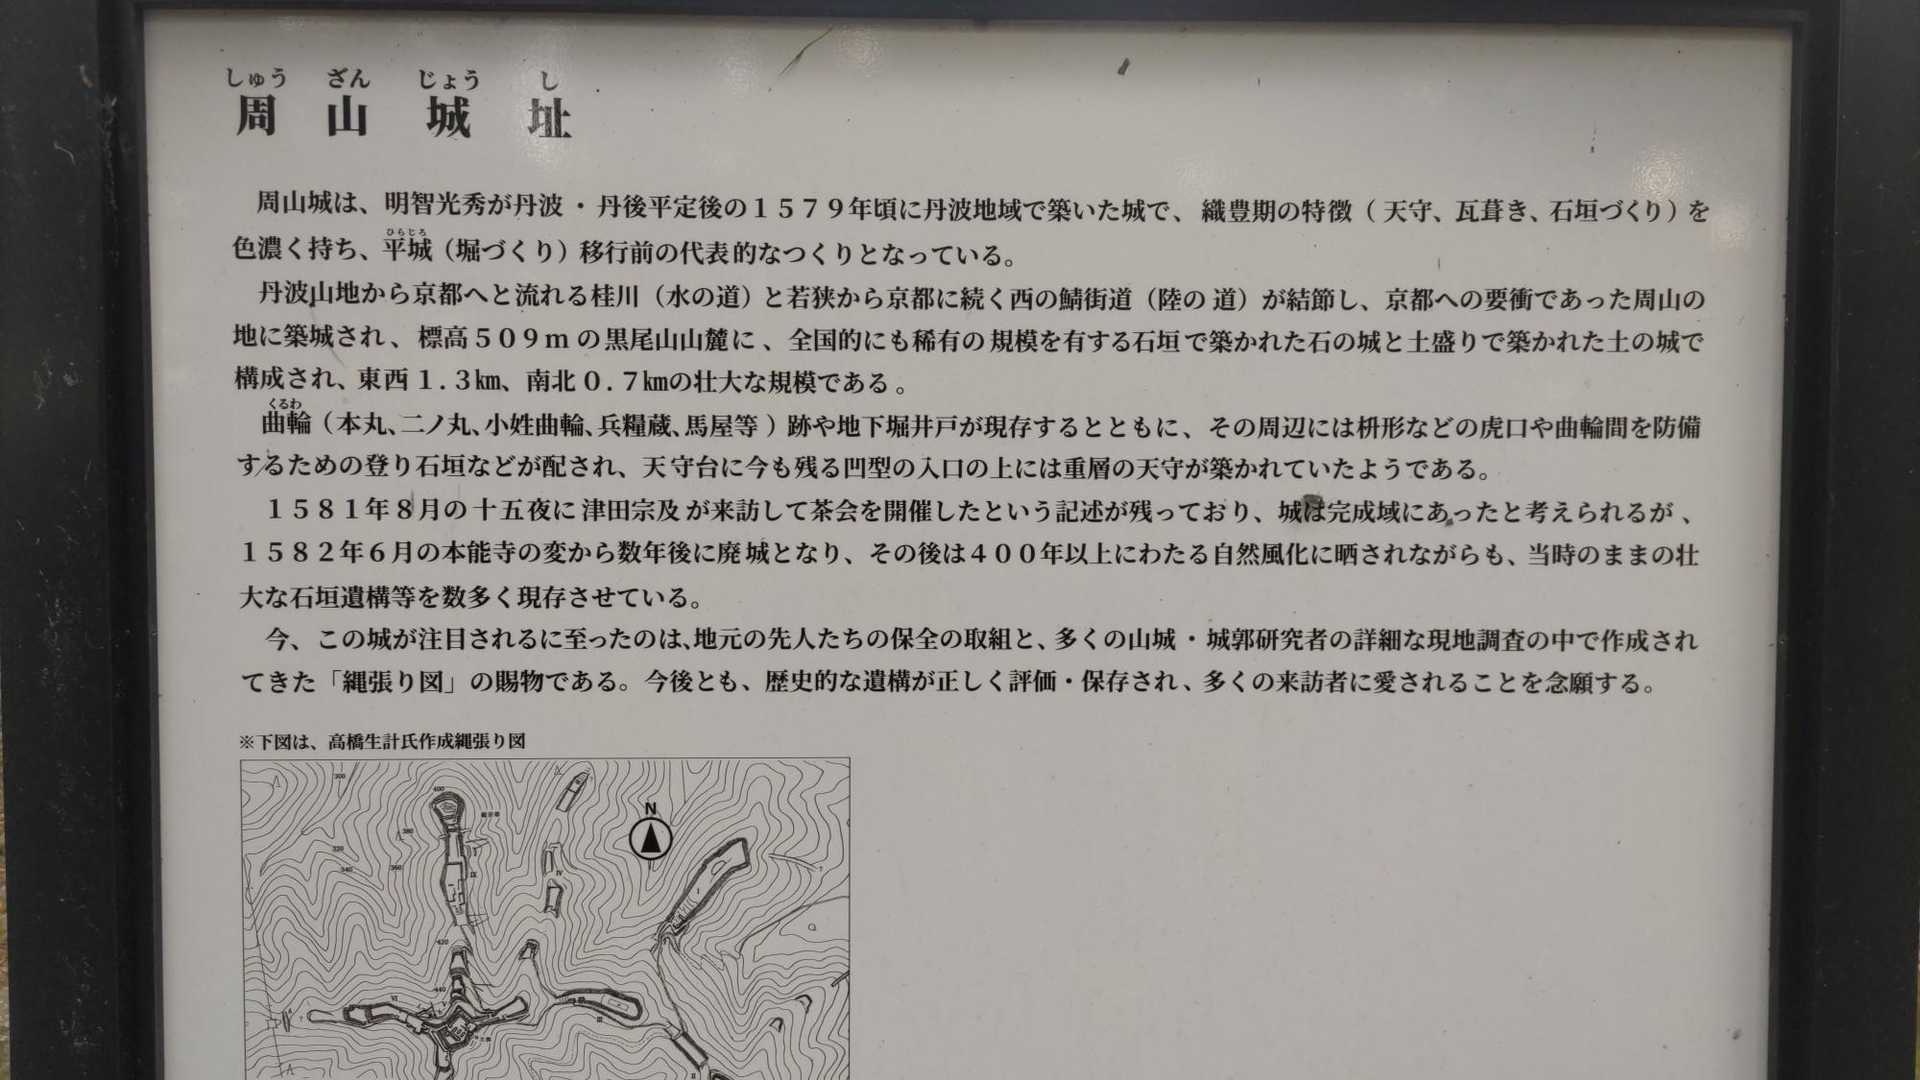 しゅう ざん じょう し
周山城址
周山城は、明智光秀が丹波・丹後平定後の１５７９年頃に丹波地域で築いた城で、織豊期の特徴（天守、瓦葺き、石垣づくり）を
ひらじろ
色濃く持ち、平城（堀づくり）移行前の代表的なつくりとなっている。
丹波山地から京都へと流れる桂川（水の道）と若狭から京都に続く西の鯖街道（陸の道）が結節し、京都への要衝であった周山の
地に築城され、標高５０９ｍの黒尾山山麓に、全国的にも稀有の規模を有する石垣で築かれた石の城と土盛りで築かれた土の城で
構成され、東西１.３㎞、南北０.７㎞の壮大な規模である。
くるわ
曲輪（本丸、二ノ丸、小姓曲輪、兵糧蔵、馬屋等）跡や地下堀井戸が現存するとともに、その周辺には枡形などの虎口や曲輪間を防備
するための登り石垣などが配され、天守台に今も残る凹型の入口の上には重層の天守が築かれていたようである。
１５８１年８月の十五夜に津田宗及が来訪して茶会を開催したという記述が残っており、城は完成域にあったと考えられるが、
１５８２年６月の本能寺の変から数年後に廃城となり、その後は４００年以上にわたる自然風化に晒されながらも、当時のままの壮
大な石垣遺構等を数多く現存させている。
今、この城が注目されるに至ったのは、地元の先人たちの保全の取組と、多くの山城・城郭研究者の詳細な現地調査の中で作成され
てきた「縄張り図」の賜物である。今後とも、歴史的な遺構が正しく評価・保存され、多くの来訪者に愛されることを念願する。
※下図は、高橋生計氏作成縄張り図
300
400
N
380
320
340
360
IV
420
440
VI